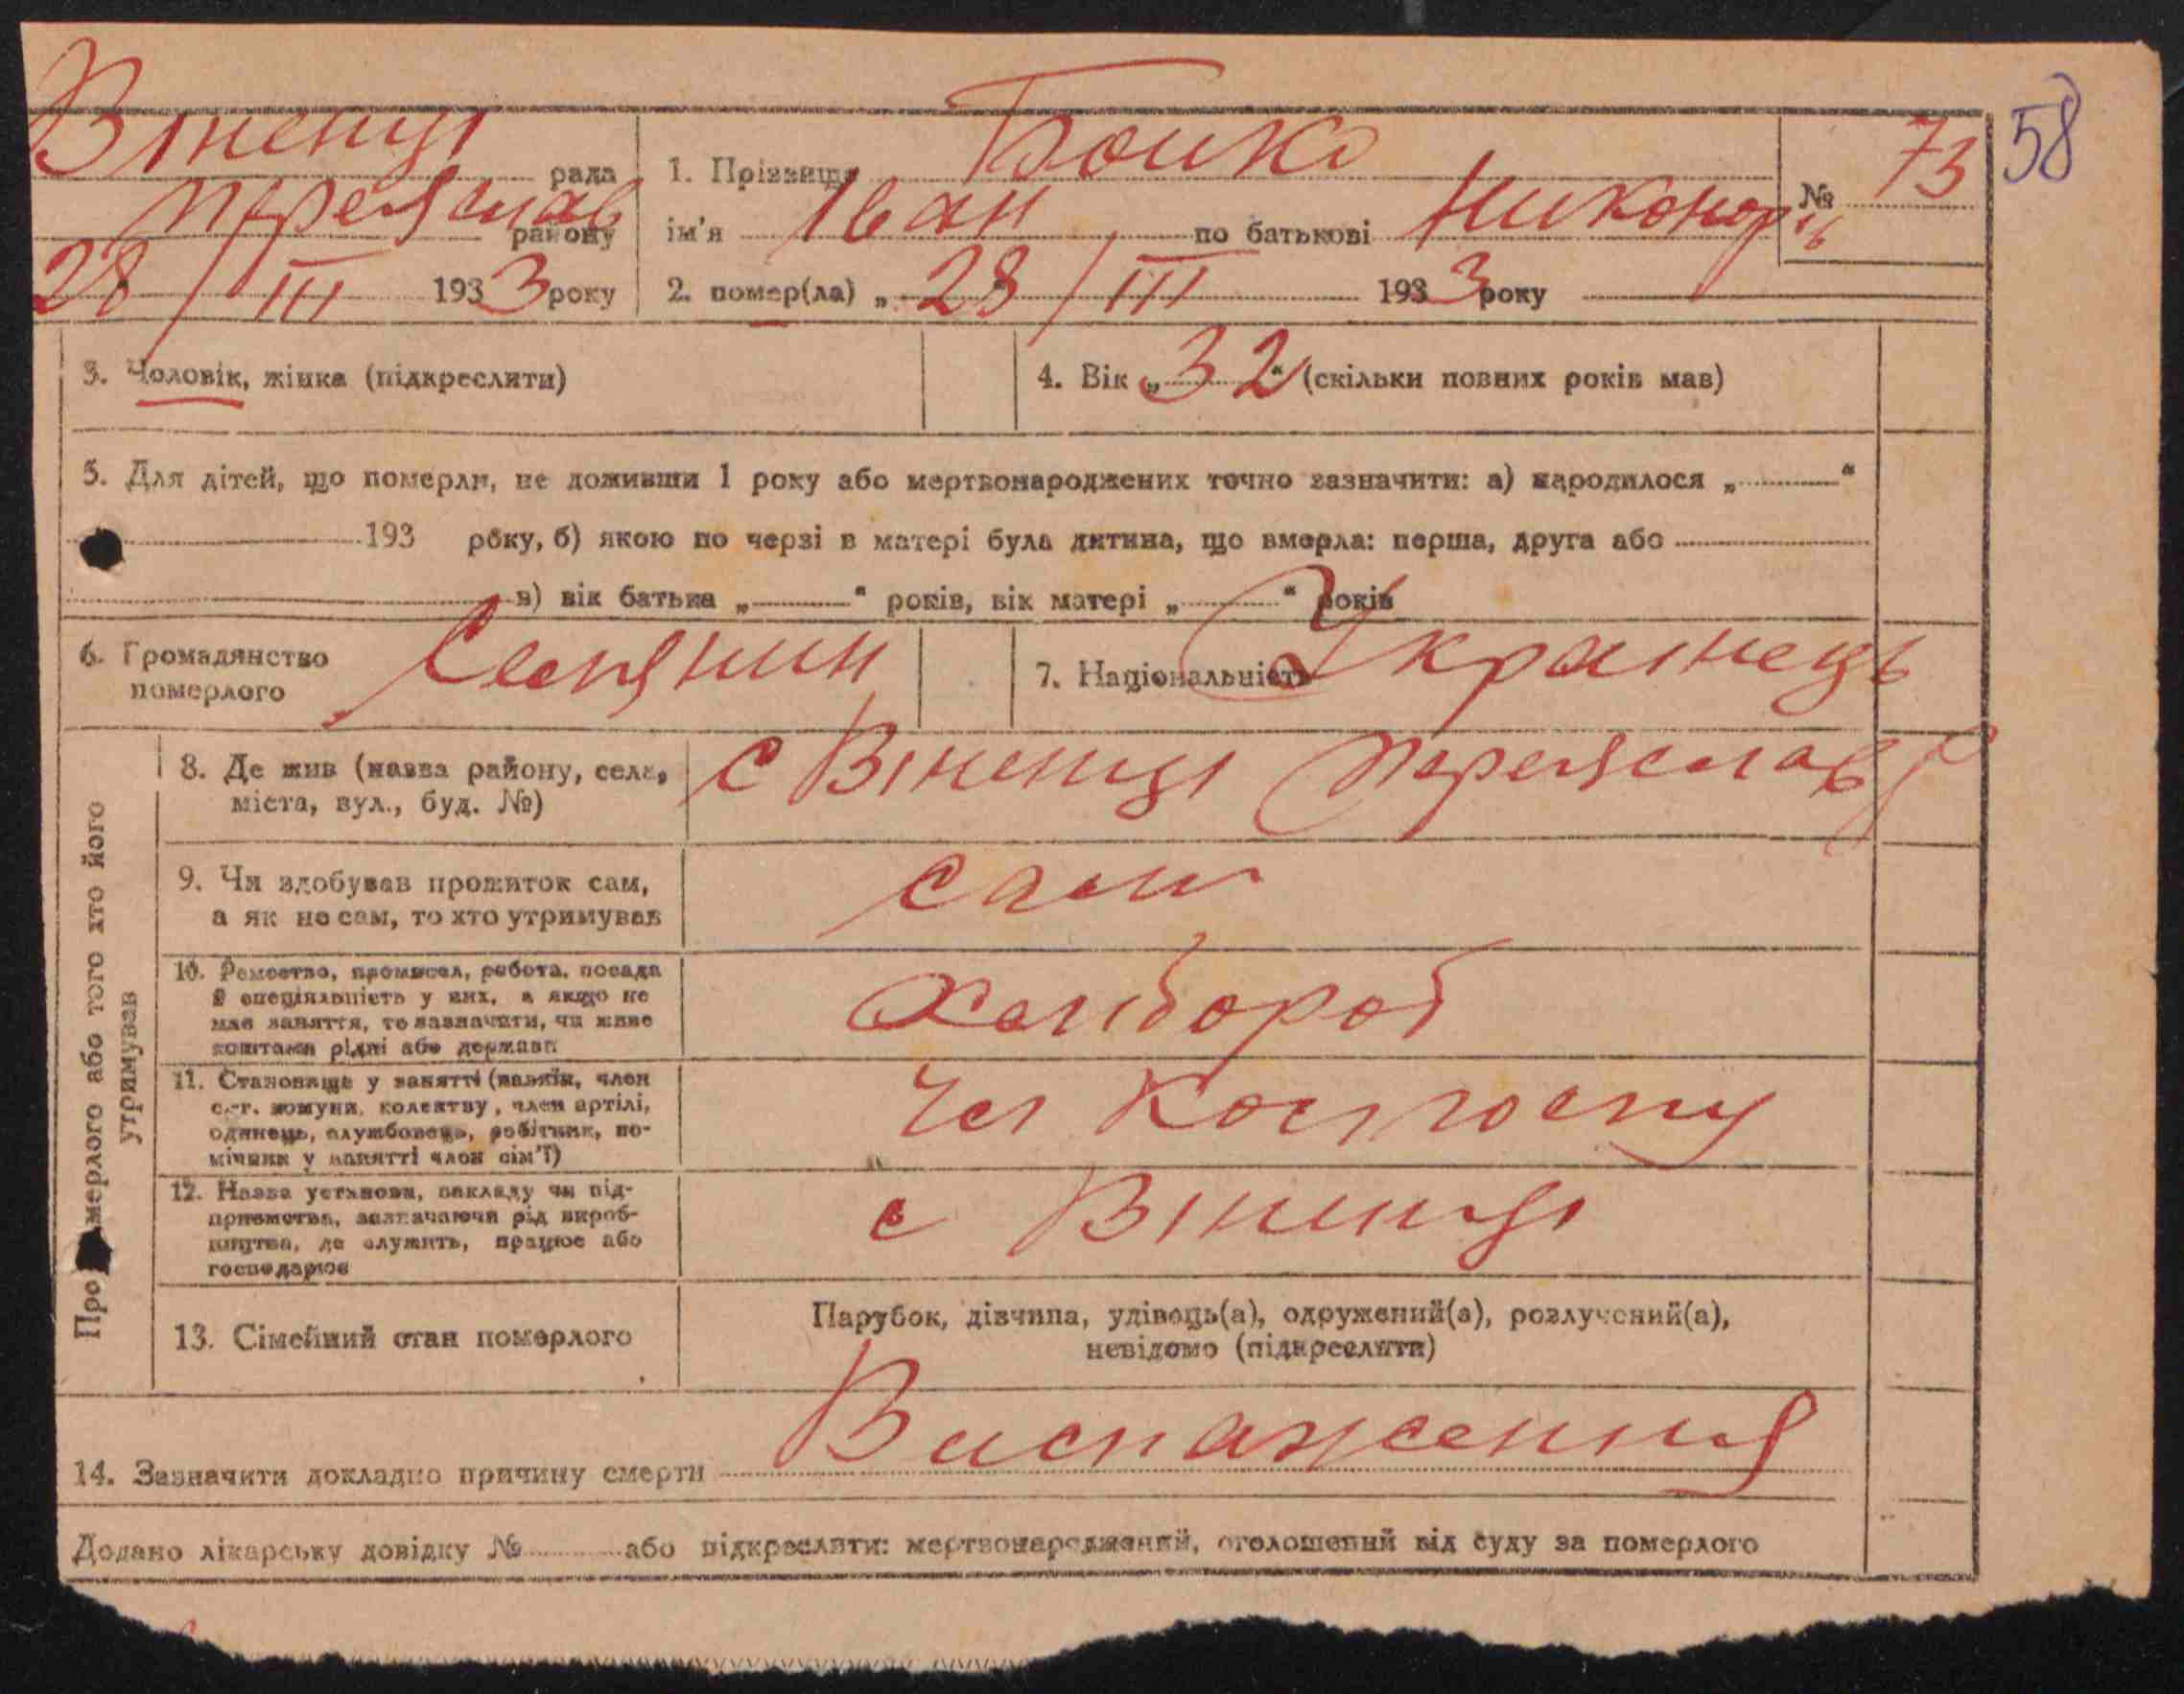 Віненці рада
Переяслав району
28/III 1933 року
1. Прізвище Бойко
ім'я Іван по батькові Никонор
2. помер(ла) „ 28/III 1933 року
№ 73
58
3. Чоловік, жінка (підкреслити)
4. Вік „32“ (скільки повних років мав)
5. Для дітей, що померли, не доживши 1 року або мертвонароджених точно зазначити: а) народилося „ “
193 року, б) якою по черзі в матері була дитина, що вмерла: перша, друга або
в) вік батька „ “ років, вік матері „ “ років
6. Громадянство
померлого
Селянин
7. Національність Українець
Про мерлого або того хто його
утримував
8. Де жив (назва району, села,
міста, вул., буд. №)
с Віненці Переяслав р
9. Чи здобував прожиток сам,
а як не сам, то хто утримував
сам
10. Ремество, промисел, робота, посада
й спеціяльність у них, а якщо не
має заняття, то зазначити, чи живе
коштами рідні або держави
Хлібороб
11. Становище у занятті (хазяїн, член
с.-г. комуни, колективу, член артілі,
одинець, службовець, робітник, по-
мічник у занятті член сім'ї)
Чл Колгоспу
12. Назва установи, закладу чи під-
приємства, зазначаючи рід вироб-
ництва, де служить, працює або
господарює
с Вінинці
13. Сімейний стан померлого
Парубок, дівчина, удівець(а), одружений(а), розлучений(а),
невідомо (підкреслити)
14. Зазначити докладно причину смерти Виснаження
Додано лікарську довідку № або підкреслити: мертвонароджений, оголошений від суду за померлого